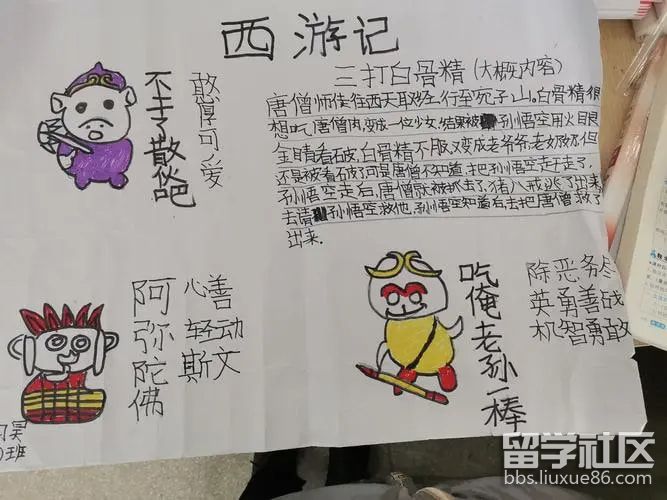 西游记
三打白骨精(大概内容)
唐僧师徒往西天取经,行至宛子山。白骨精很
想吃唐僧肉,变成一位少女,结果被孙悟空用火眼
金睛看破,白骨精不服,又变成老爷爷、老奶奶,但
还是被看破,可是唐僧不知道,把孙悟空赶走了,
孙悟空走后,唐僧就被抓去了,猪八戒逃了出来,
去请孙悟空救他,孙悟空知道后去把唐僧救了
出来.
憨厚可爱
不走了散伙吧
阿弥陀佛
心善
轻动
斯文
吃俺老孙一棒
除恶务尽
英勇善战
机智勇敢
昊
班
留学社区
bbs.liuxue86.com